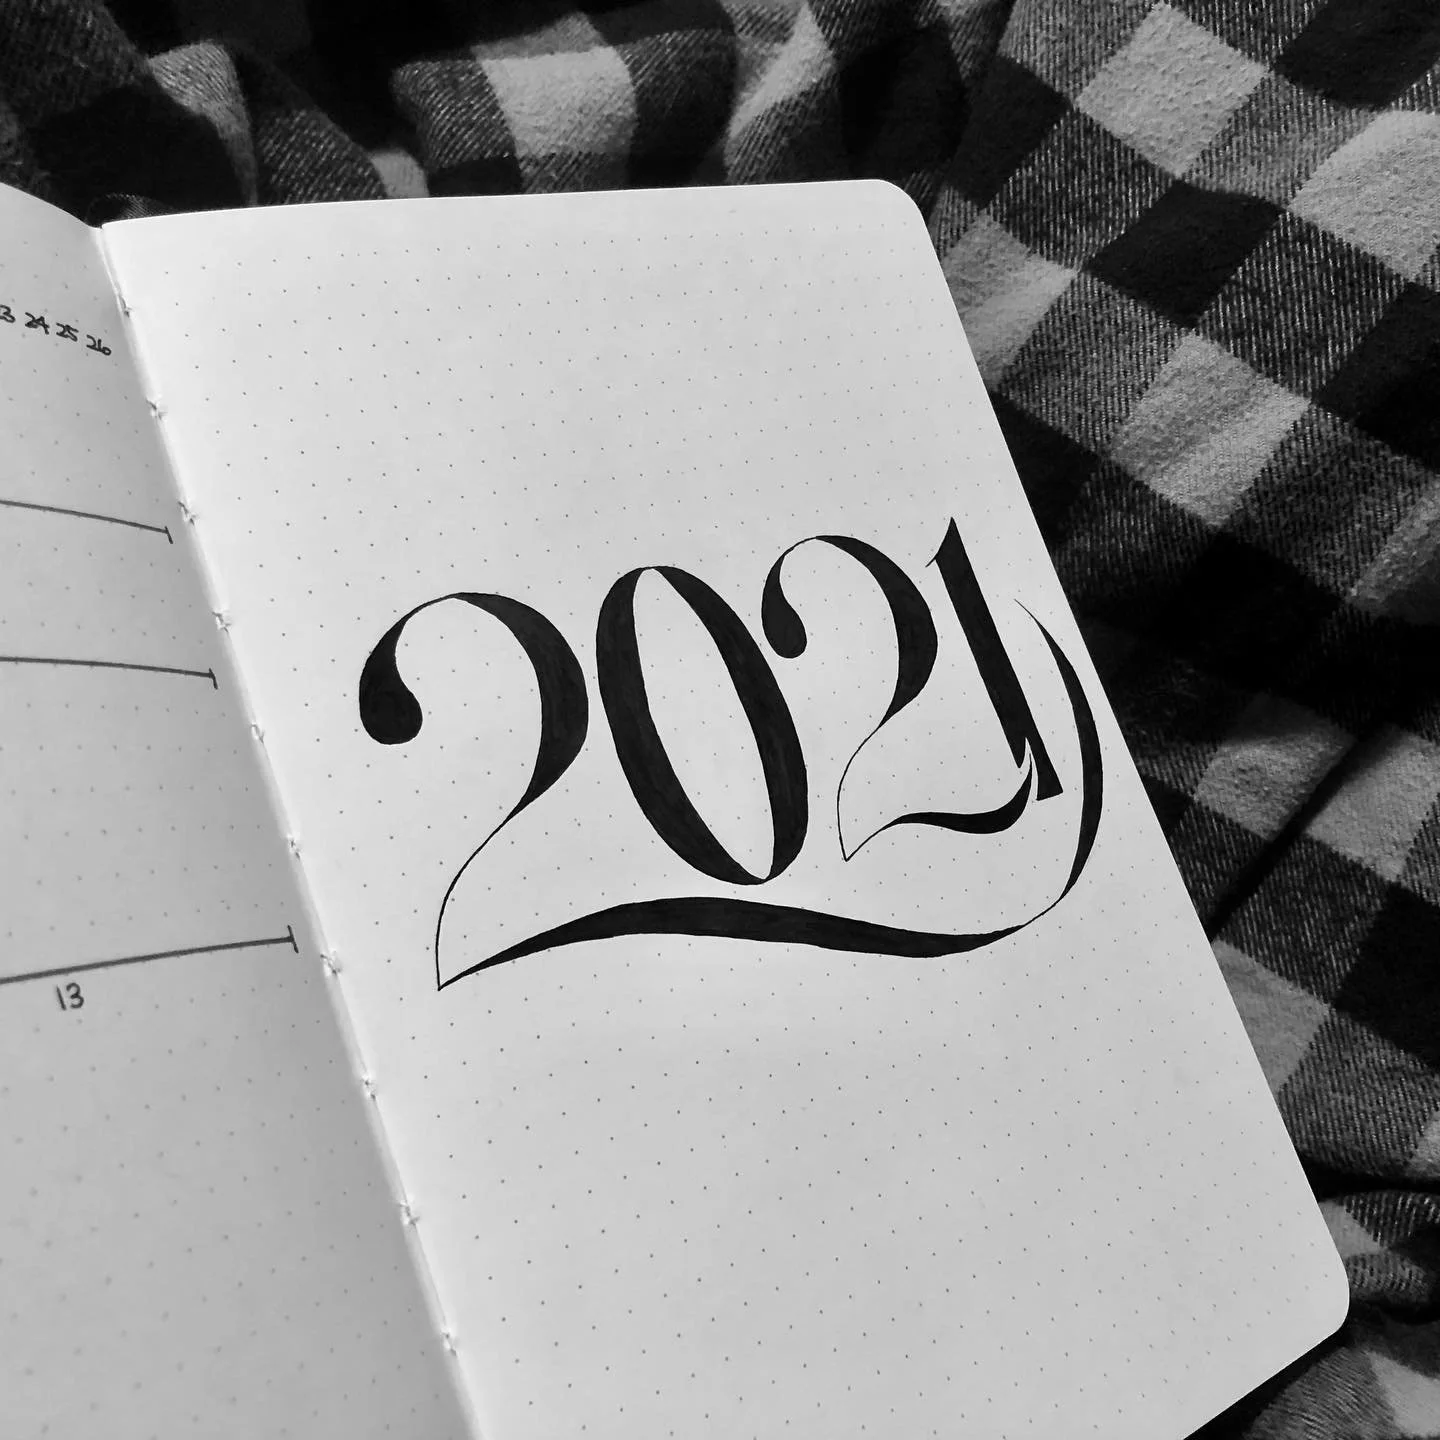 24 25 26
13
2021